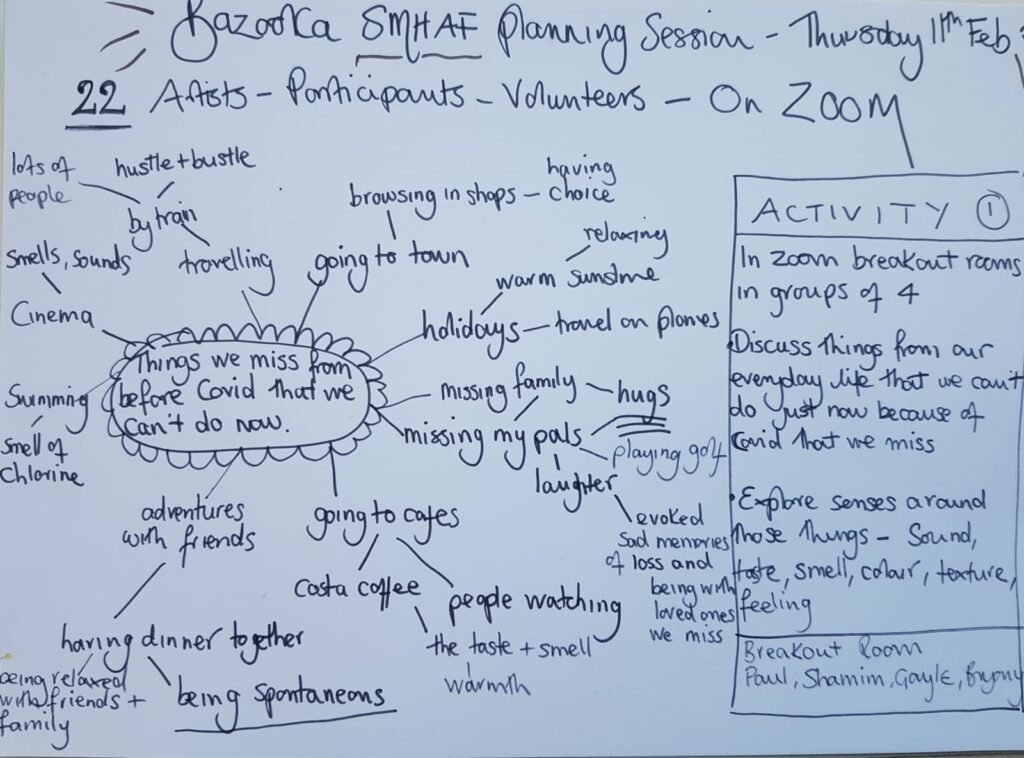 Bazooka SMHAF Planning Session - Thursday 11th Feb
22 Artists - Participants - Volunteers - On ZOOM
lots of
people
hustle + bustle
by train
travelling
smells, sounds
Cinema
browsing in shops - having
choice
going to town
relaxing
warm sunshine
holidays - travel on planes
Things we miss from
before Covid that we
can't do now.
missing family
hugs
missing my pals
playing golf
laughter
evoked
sad memories
of loss and
being with
loved ones
we miss
Swimming
smell of
Chlorine
adventures
with friends
having dinner together
being relaxed
with friends +
family
being spontaneous
going to cafes
Costa coffee
people watching
the taste + smell
warmth
ACTIVITY 1
In Zoom breakout rooms
in groups of 4
Discuss things from our
everyday life that we can't
do just now because of
Covid that we miss
• Explore senses around
those things - Sound,
taste, smell, colour, texture,
feeling
Breakout Room
Paul, Shamim, Gayle, Bryony